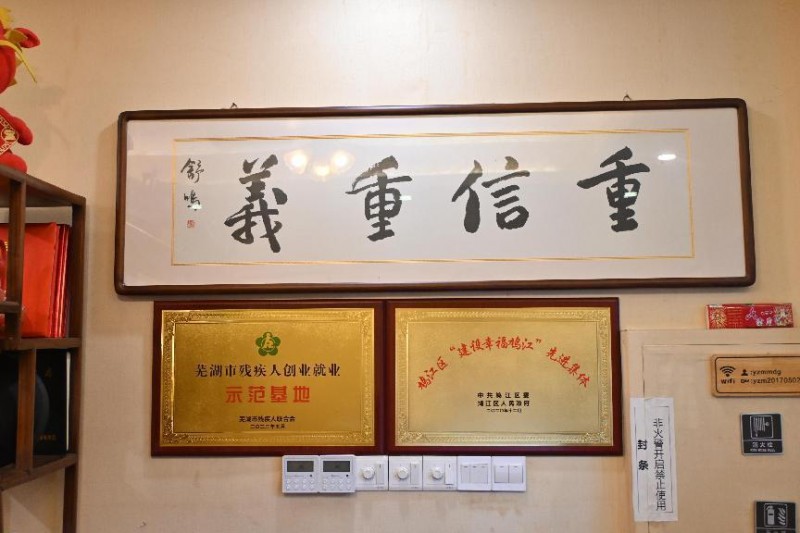 重信重義
舒鸣
芜湖市残疾人创业就业
示范基地
芜湖市残疾人联合会
鸠江区“建设幸福鸠江”先进集体
中共鸠江区委
鸠江区人民政府
WiFi
非火警开启禁止使用
封条
消火栓